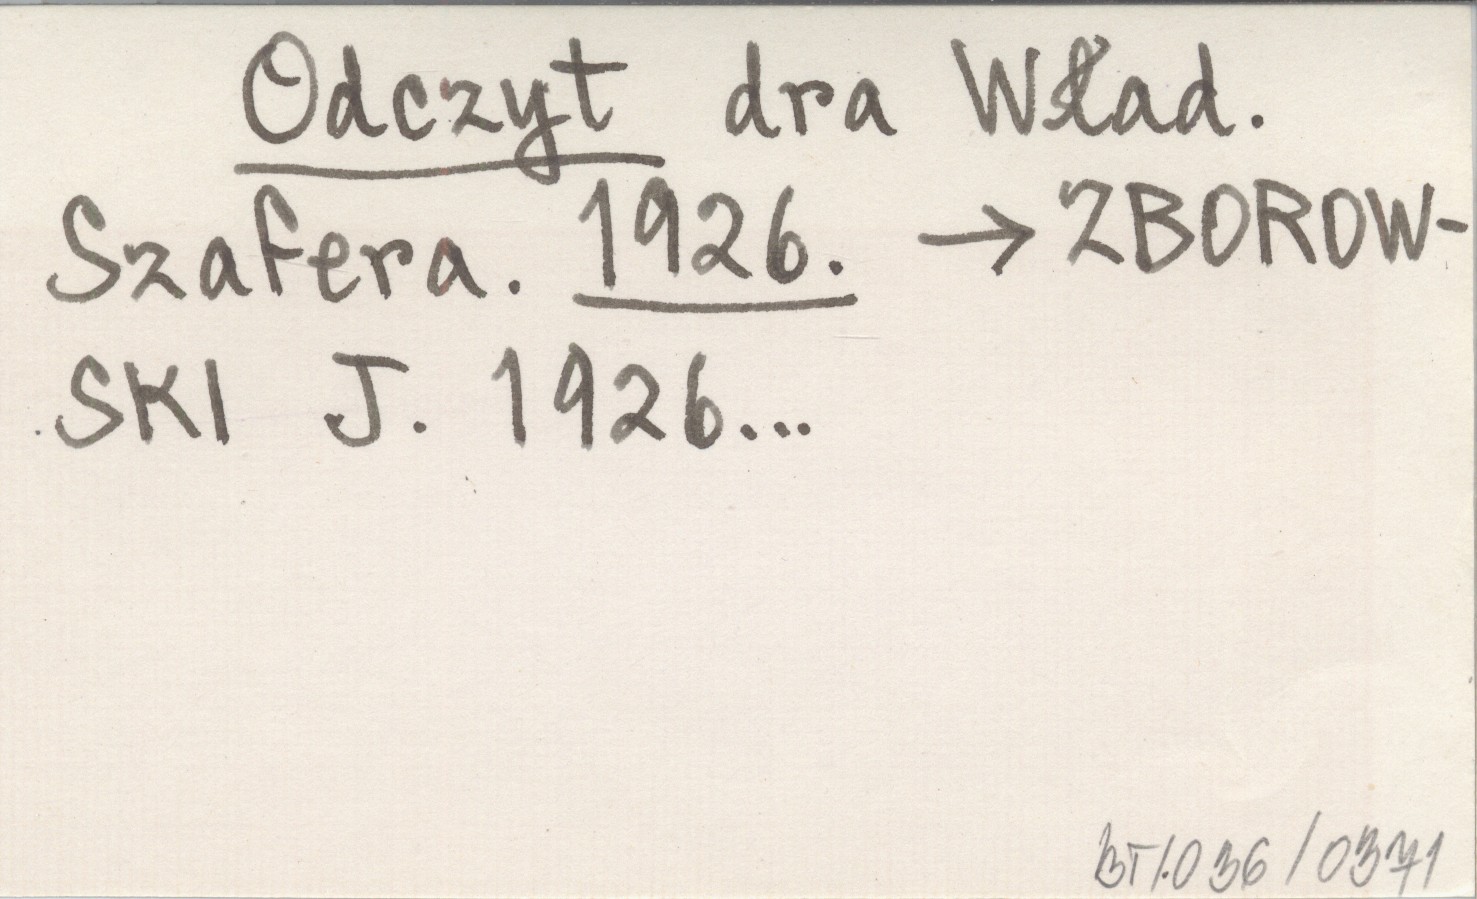 Odczyt dra Wład.
Szafera. 1926. → ZBOROW-
SKI J. 1926...
BT1.036/0371